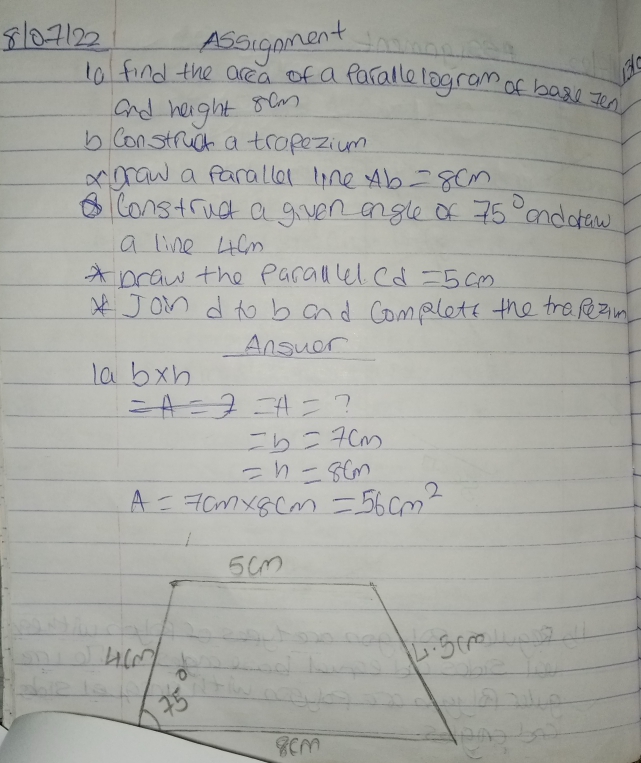 8/07/22 Assignment
1a find the area of a Parallelogram of base 7cm
and height 8cm
b Construct a trapezium
* Draw a Parallel line Ab = 8cm
* Construct a given angle of 75° and draw
a line 4cm
* Draw the Parallel Cd = 5cm
* Join d to b and Complete the trapezim
Answer
1a b×h
= A = 7 = A = ?
= b = 7cm
= h = 8cm
A = 7cm×8cm = 56cm²
5cm
4cm
4.5cm
75°
8cm